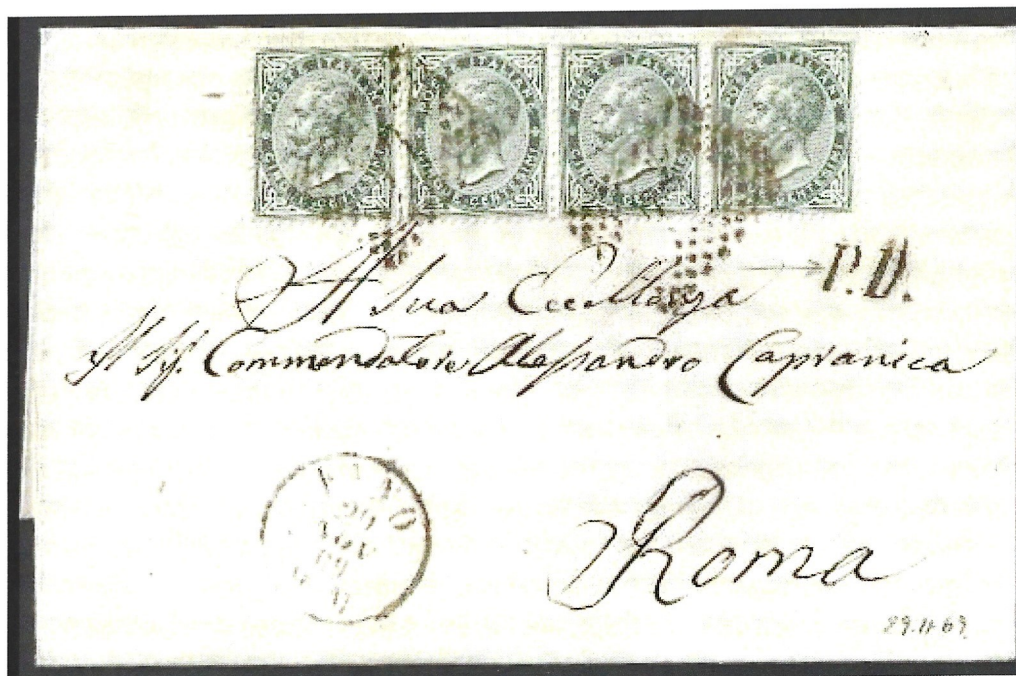 POSTE ITALIANE POSTE ITALIANE POSTE ITALIANE POSTE ITALIANE
P.D.
A Sua Eccellenza
Il Sig. Commendatore Alessandro Capranica
29
NOV
69
Roma
29.11.69